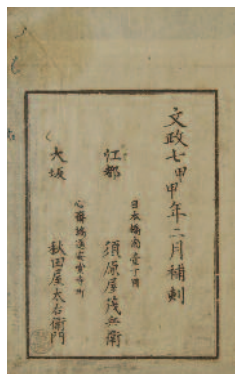 文政七甲申年二月補刻
江都
日本橋南壹丁目
須原屋茂兵衛
大坂
心齋橋通安堂寺町
秋田屋太右衛門